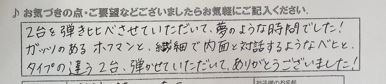 ♪お気づきの点・ご要望などございましたらお気軽にご記入ください。
2台を弾き比べさせていただいて、夢のような時間でした!
ガッツのあるホフマンと、繊細で内面と対話するようなベヒと、
タイプの違う2台、弾かせていただいて、ありがとうございました!